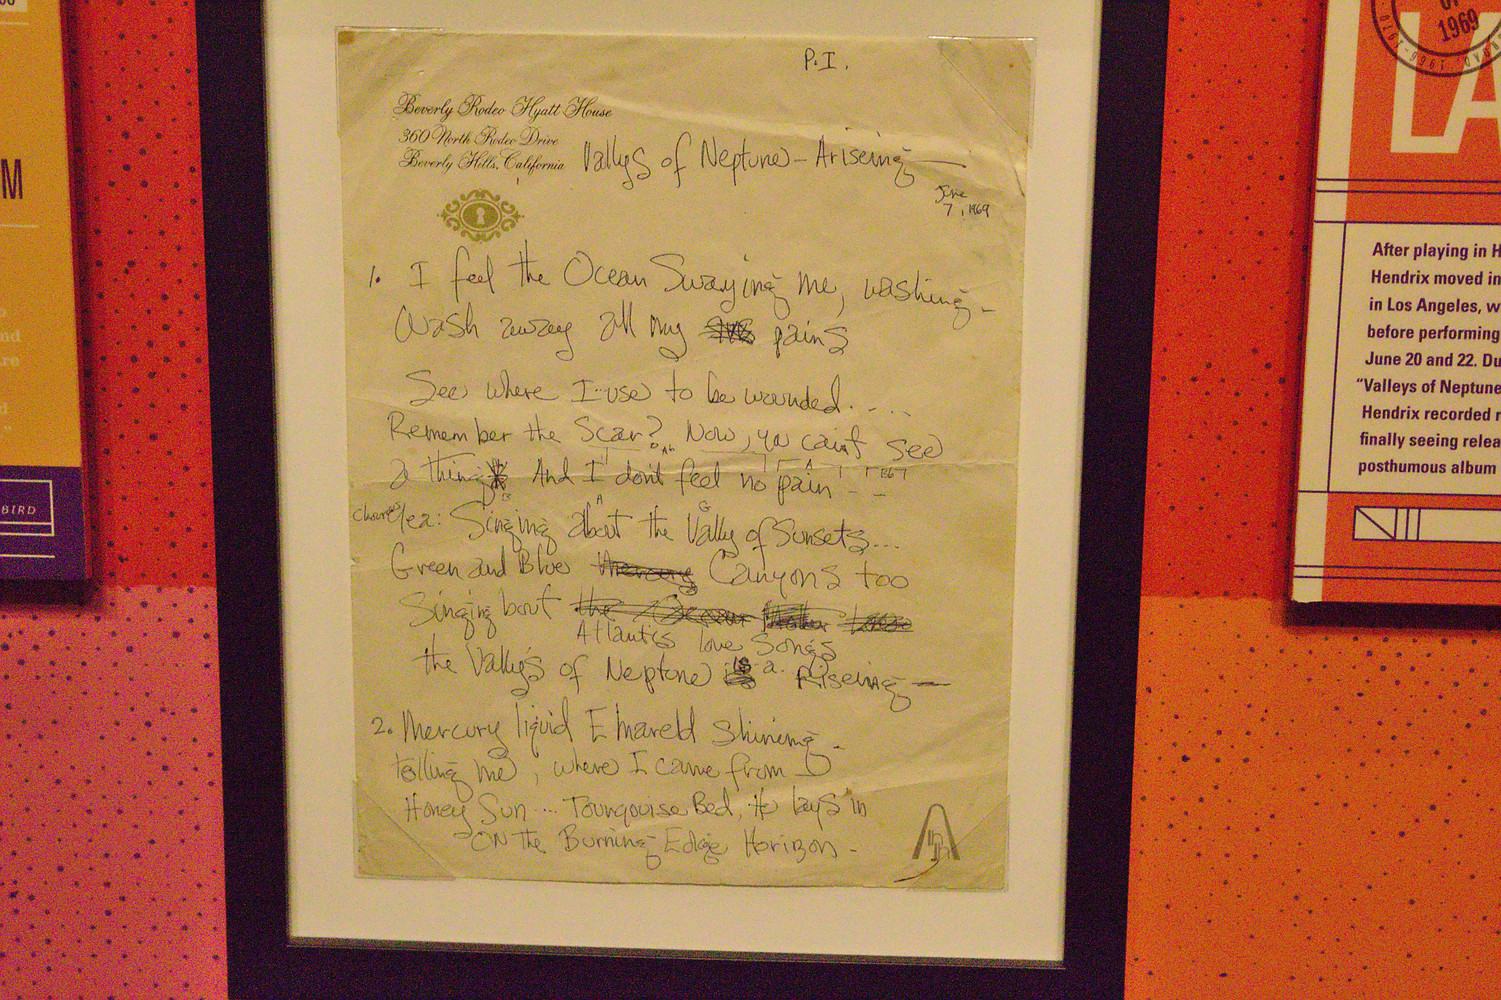 P.I.
Beverly Rodeo Hyatt House
360 North Rodeo Drive
Beverly Hills, California
Vallys of Neptune - Ariseing —
June
7, 1969
1. I feel the Ocean Swaying me, washing -
Wash away all my pains
See where I use to be wounded....
Remember the Scar? Now, you cain't see
a thing And I don't feel no pain - -
Singing about the Vally of Sunsets...
Green and Blue Mercury Canyons too
Singing bout the Ocean
Atlantis love Songs
the Vallys of Neptune is a Riseing —
2. Mercury liquid Emareld shining -
telling me, where I came from
Honey Sun ... Tourqouise Bed, He lays in
ON the Burning Edge Horizon -
M
nd
re
d
BIRD
1969
LA
After playing in H
Hendrix moved in
in Los Angeles, w
before performing
June 20 and 22. Du
"Valleys of Neptune
Hendrix recorded
finally seeing relea
posthumous album